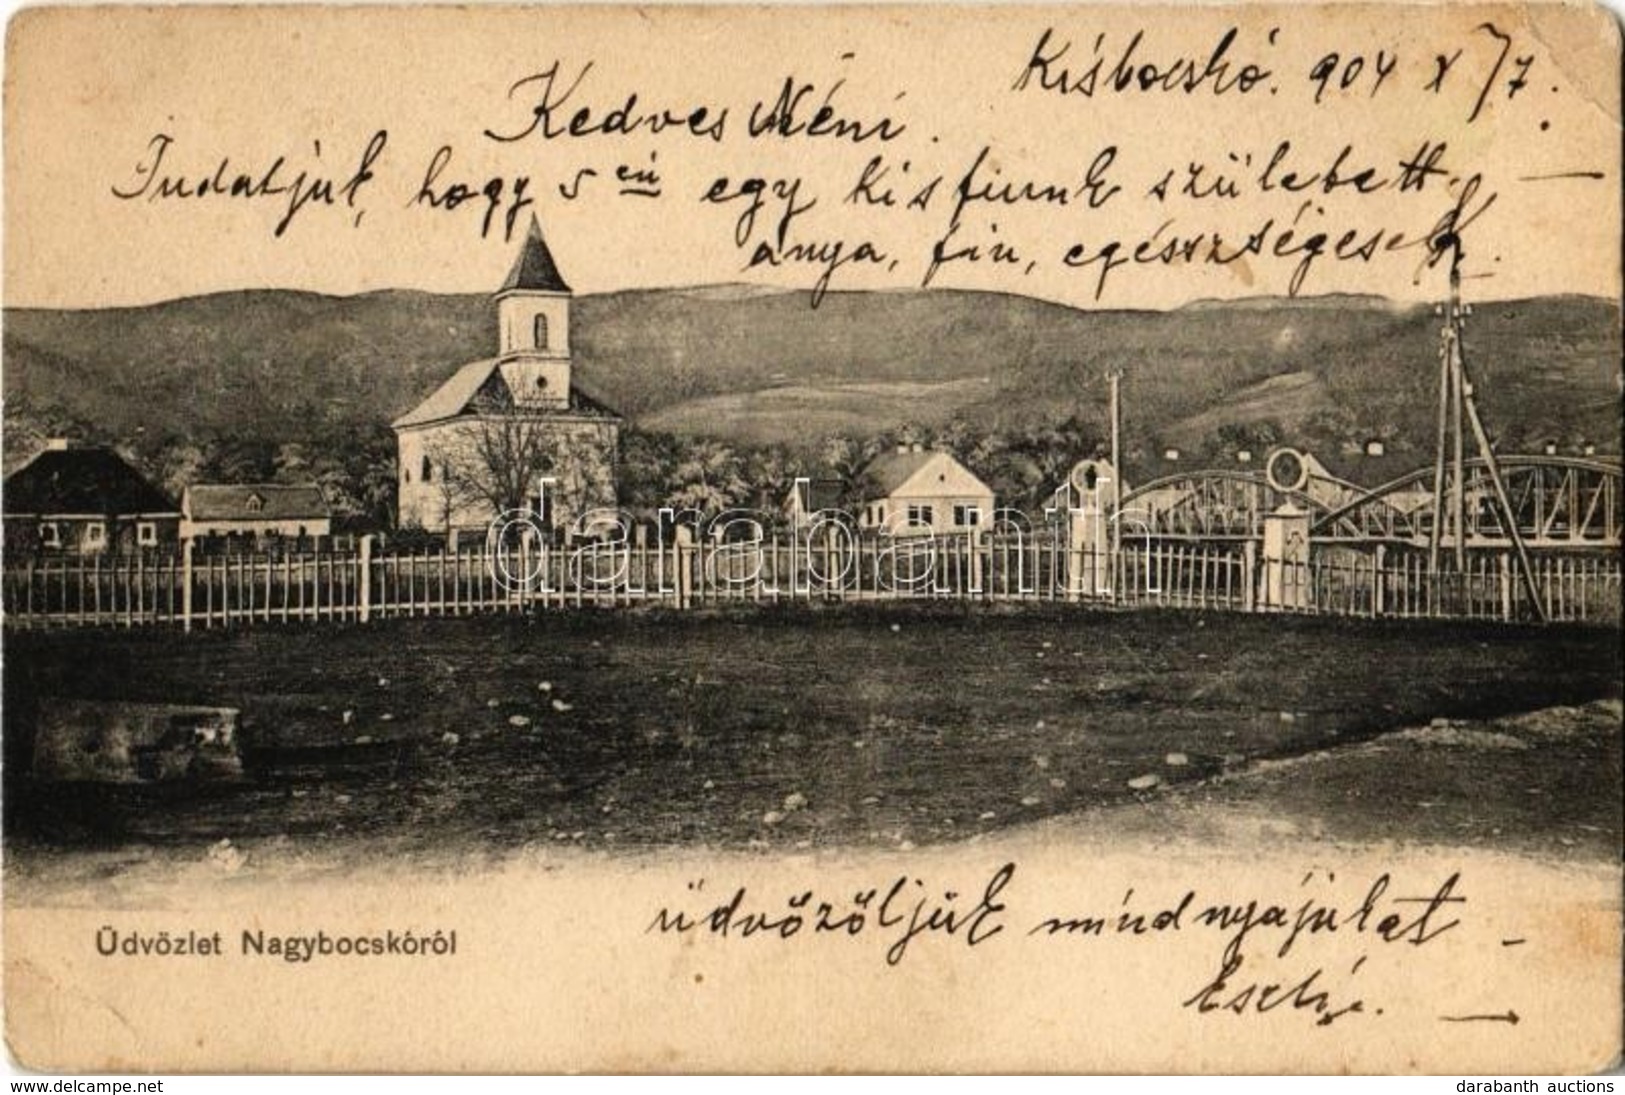 Kisbocskó. 904 X/7.
Kedves Néni.
Tudatjuk, hogy 5 én egy kis fiunk született. —
anya, fiu, egészségesek.
darabanth
üdvőzőljük mindnyájukat -
Üdvözlet Nagybocskóról
www.delcampe.net
darabanth auctions